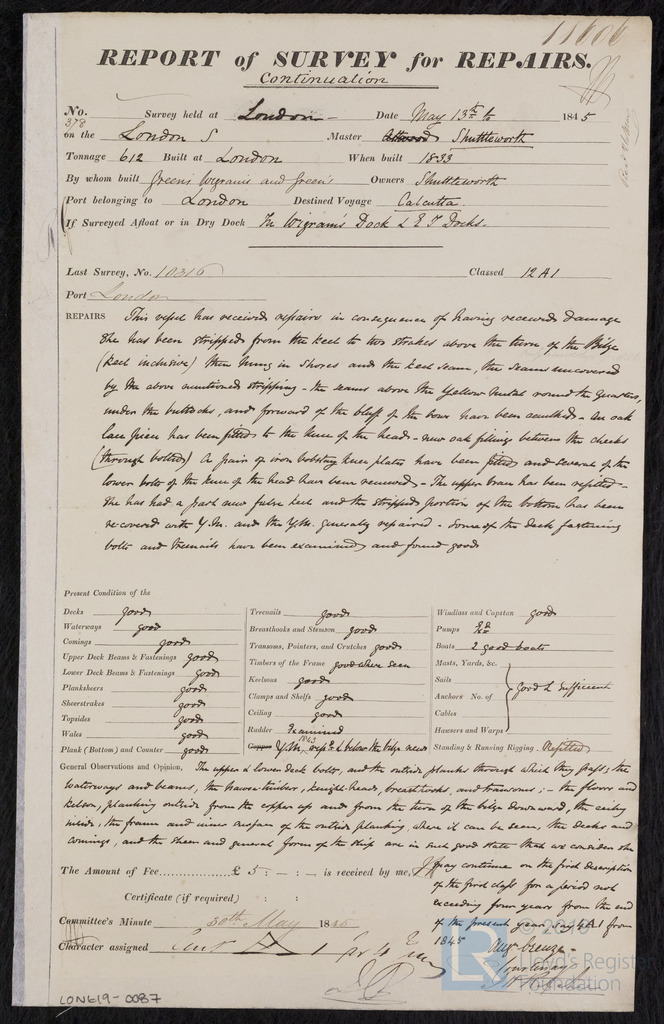 11606
REPORT of SURVEY for REPAIRS.
Continuation
No. 378 Survey held at London Date May 13th to 1845
on the London S Master Attwood Shuttleworth
Tonnage 612 Built at London When built 1833
By whom built Greens Wigrams and Green's Owners Shuttleworth
Port belonging to London Destined Voyage Calcutta
If Surveyed Afloat or in Dry Dock In Wigram's Dock & E I Docks.
Last Survey, No. 10316 Classed 12 A1
Port London
REPAIRS This vessel has received repairs in consequence of having received damage
She has been stripped from the keel to two strakes above the turn of the Bilge
(keel inclusive) then hung in shores and the keel seam, the seams uncovered
by the above mentioned stripping - the seams above the Yellow Metal round the quarters,
under the buttocks, and forward of the bluff of the bows have been caulked - An oak
lace piece has been fitted to the knee of the head - new oak fillings between the cheeks
(through bolted) A pair of iron bobstay knee plates have been fitted and several of the
lower bolts of the knee of the head have been renewed - The upper has been refitted -
She has had a part new false keel and the stripped portion of the bottom has been
re-covered with Y.M. and the Y.M. generally repaired - Some of the deck fastening
bolts and treenails have been examined and found good
Present Condition of the
Decks good Treenails good Windlass and Capstan good
Waterways good Breasthooks and Stemson good Pumps
Comings good Transoms, Pointers, and Crutches good Boats 2 good boats
Upper Deck Beams & Fastenings good Timbers of the Frame good where seen Masts, Yards, &c.
Lower Deck Beams & Fastenings good Keelsons good Sails
Planksheers good Clamps and Shelfs good Anchors No. of good & sufficient
Sheerstrakes good Ceiling good Cables
Topsides good Rudder Examined Hawsers and Warps
Wales good Copper Y.M. rep'd & below the bilge new Standing & Running Rigging Refitted
Plank (Bottom) and Counter good
General Observations and Opinion, The upper & lower deck bolts, and the outside planks through which they pass; the
waterways and beams, the hawse timber, knight-heads, breasthooks, and transoms; - the floors and
kelson, planking outside from the copper up and from the turn of the bilge downward, the ceiling
inside, the frame and inner surface of the outside planking, where it can be seen, the decks and
comings, and the sheer and general form of the ship are in such good state that we consider she
may continue on the first description
of the first class for a period not
exceeding four years from the end
of the present year, say 4A1 from
1845
The Amount of Fee......£ 5 : - : - is received by me,
Certificate (if required) : :
Committee's Minute 30th May 1845
Character assigned A 1 for 4
LON619-0087
© 2019
LR
Lloyd's Register
Foundation